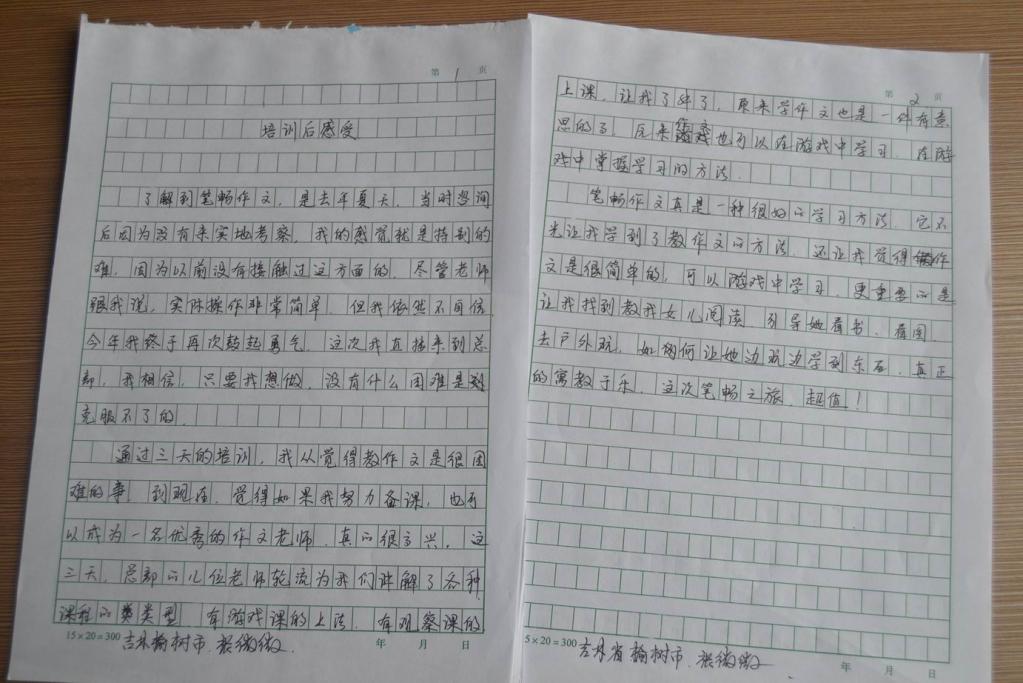 第 1 页
培训后感受
了解到笔畅作文，是去年夏天，当时咨询
后因为没有来实地考察，我的感觉就是特别的
难，因为以前没有接触过这方面的，尽管老师
跟我说，实际操作非常简单，但我依然不自信
今年我终于再次鼓起勇气，这次我直接来到总
部，我相信，只要我想做，没有什么困难是
克服不了的。
通过三天的培训，我从觉得教作文是很困
难的事，到现在，觉得如果我努力备课，也可
以成为一名优秀的作文老师，真的很高兴，这
三天，总部的几位老师轮流为我们讲解了各种
课程的类型，有游戏课的上法，有观察课的
15×20=300 吉林榆树市 张微微 年 月 日
第 2 页
上课，让我了解了，原来学作文也是一件有意
思的事，原来作文也可以在游戏中学习，在游
戏中掌握学习的方法。
笔畅作文真是一种很好的学习方法，它不
光让我学到了教作文的方法，还让我觉得作
文是很简单的，可以游戏中学习，更重要的是
让我找到教我女儿阅读，引导她看书，看图，
去户外玩，如何让她边玩边学到东西，真正
的寓教于乐，这次笔畅之旅，超值！
5×20=300 吉林省榆树市 张微微 年 月 日